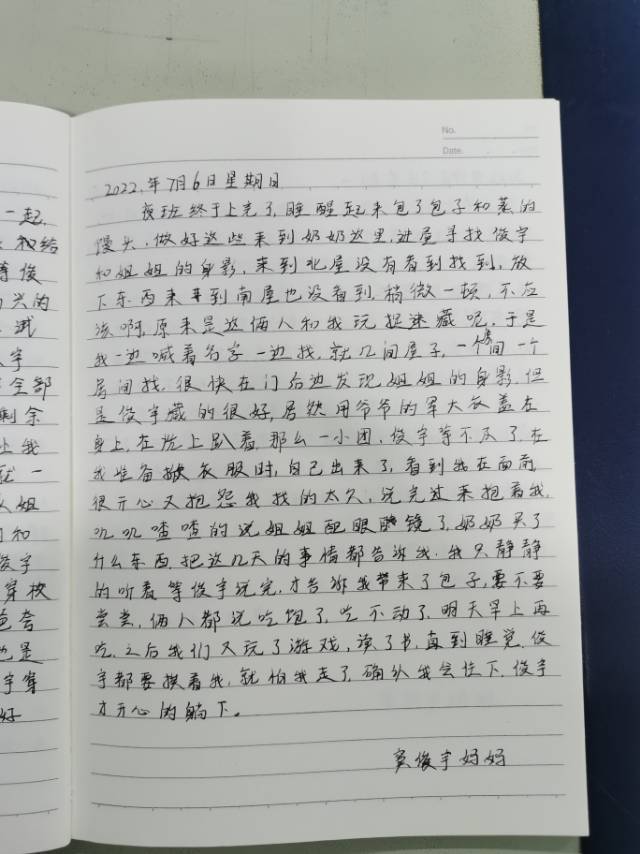 一起,
权给
等俊
兴的
试
字
全部
剩余
让我
就一
姐
和
俊宇
穿校
爸夸
也是
宇穿
好
No.
Date.
2022.年7月6日星期日
夜班终于上完了,睡醒起来包了包子和蒸的
馒头,做好这些来到奶奶这里,进屋寻找俊宇
和姐姐的身影,来到北屋没有看到找到,放
下东西来到南屋也没看到,稍微一顿,不应
该啊,原来是这俩人和我玩捉迷藏呢,于是
我一边喊着名字一边找,就几间屋子,一个间一个
房间找,很快在门后边发现姐姐的身影.但
是俊宇藏的很好,居然用爷爷的军大衣盖在
身上,在炕上趴着,那么一小团,俊宇等不及了,在
我准备掀衣服时,自己出来了,看到我在面前
很开心又抱怨我找的太久,说完过来抱着我,
叽叽喳喳的说姐姐配眼镜了,奶奶买了
什么东西,把这几天的事情都告诉我.我只静静
的听着等俊宇说完,才告诉我带来了包子,要不要
尝尝,俩人都说吃饱了,吃不动了,明天早上再
吃,之后我们又玩了游戏,读了书,直到睡觉.俊
宇都要挨着我,就怕我走了,确认我会住下.俊宇
才开心的躺下。
窦俊宇妈妈